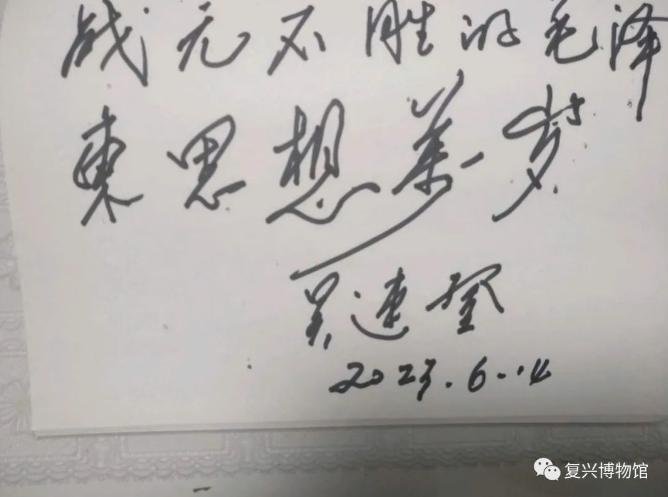 战无不胜的毛泽
東思想萬岁
吴連登
2023.6.14
复兴博物馆